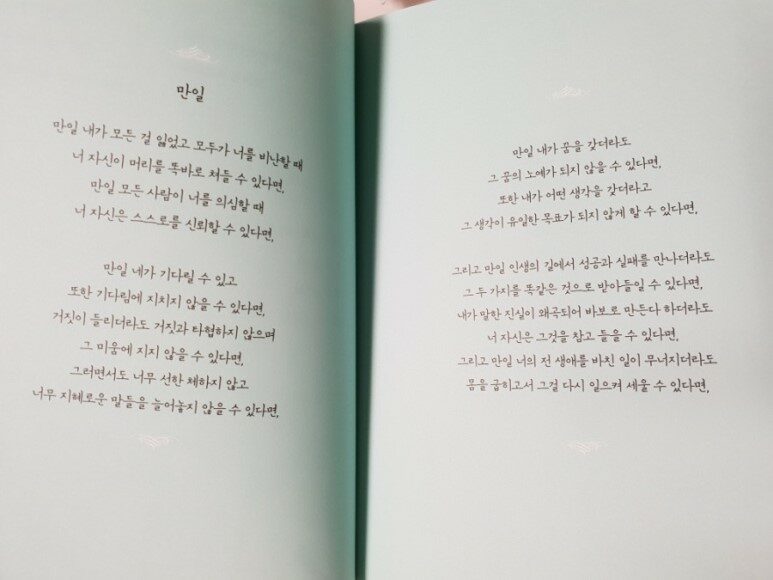 만일
만일 내가 모든 걸 잃었고 모두가 너를 비난할 때
너 자신이 머리를 똑바로 쳐들 수 있다면,
만일 모든 사람이 너를 의심할 때
너 자신은 스스로를 신뢰할 수 있다면,
만일 네가 기다릴 수 있고
또한 기다림에 지치지 않을 수 있다면,
거짓이 들리더라도 거짓과 타협하지 않으며
그 미움에 지지 않을 수 있다면,
그러면서도 너무 선한 체하지 않고
너무 지혜로운 말들을 늘어놓지 않을 수 있다면,
만일 내가 꿈을 갖더라도
그 꿈의 노예가 되지 않을 수 있다면,
또한 내가 어떤 생각을 갖더라고
그 생각이 유일한 목표가 되지 않게 할 수 있다면,
그리고 만일 인생의 길에서 성공과 실패를 만나더라도
그 두 가지를 똑같은 것으로 받아들일 수 있다면,
내가 말한 진실이 왜곡되어 바보로 만든다 하더라도
너 자신은 그것을 참고 들을 수 있다면,
그리고 만일 너의 전 생애를 바친 일이 무너지더라도
몸을 굽히고서 그걸 다시 일으켜 세울 수 있다면,